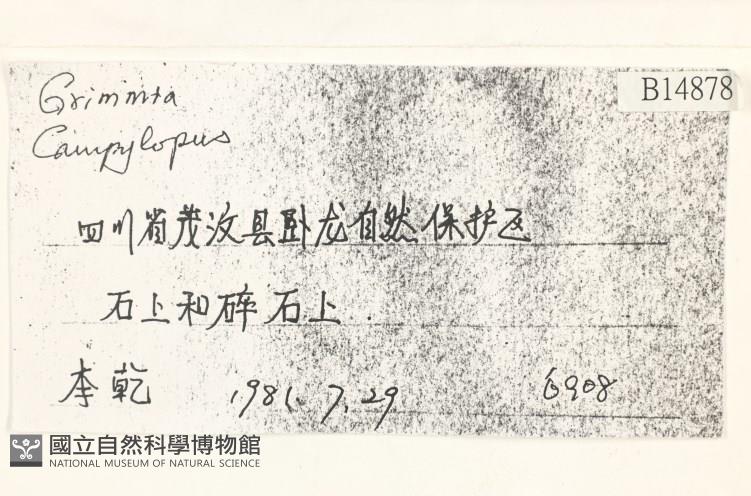 Grimmia
B14878
Campylopus
四川省茂汶县卧龙自然保护区
石上和碎石上.
李乾 1981.7.29 6908
國立自然科學博物館
NATIONAL MUSEUM OF NATURAL SCIENCE